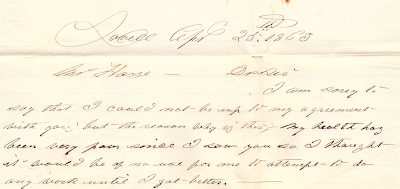 Apl 25th 1863
Mr Hasse — Dr Sir
I am sorry to
say that I could not be up to my agreement
with you; but the reason why is this; My health has
been very poor since I saw you so I thought
it would be of no use for me to attempt to do
any work until I got better. —